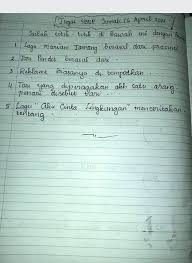 Tugas SBDP Jumat, 16 April 2021
Isilah titik-titik di bawah ini dengan
1 Lagu Mariam Jomong berasal dari provinsi
2 Jam Pandit berasal dari .
3 Reklame biasanya di tempatkan
4 Tari yang diperagakan oleh satu orang
penari disebut tari . . .
5 Lagu "Aku Cinta Lingkungan" menceritakan
tentang